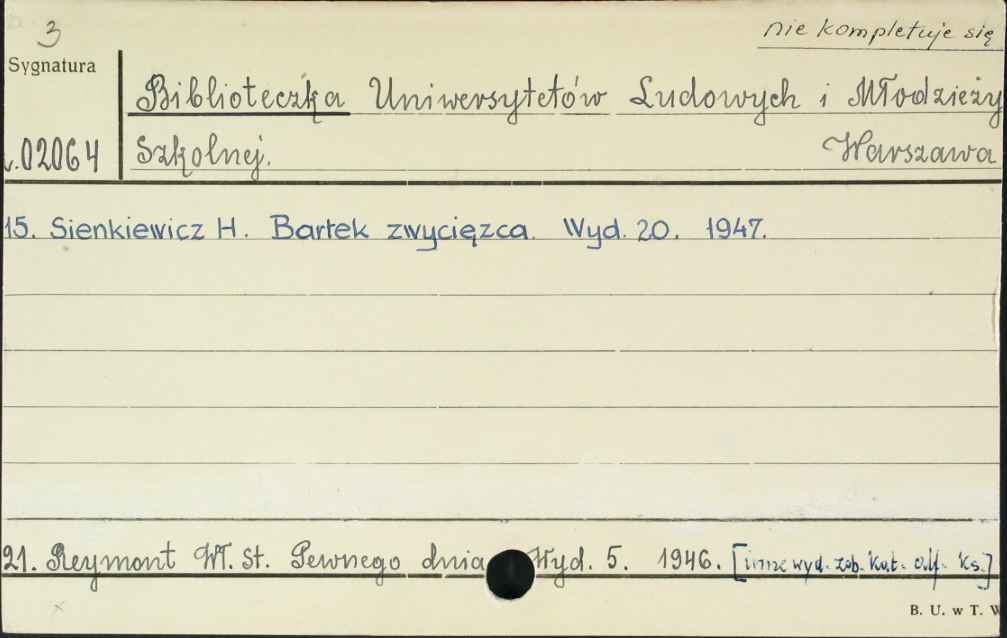 3
nie kompletuje się
Sygnatura
Biblioteczka Uniwersytetów Ludowych i Młodzieży
02064
Szkolnej. Warszawa
15. Sienkiewicz H. Bartek zwycięzca. Wyd. 20. 1947.
21. Reymont Wł. St. Pewnego dnia Wyd. 5. 1946. [inne wyd. zob. kat. alf. ks.]
B. U. w T. W